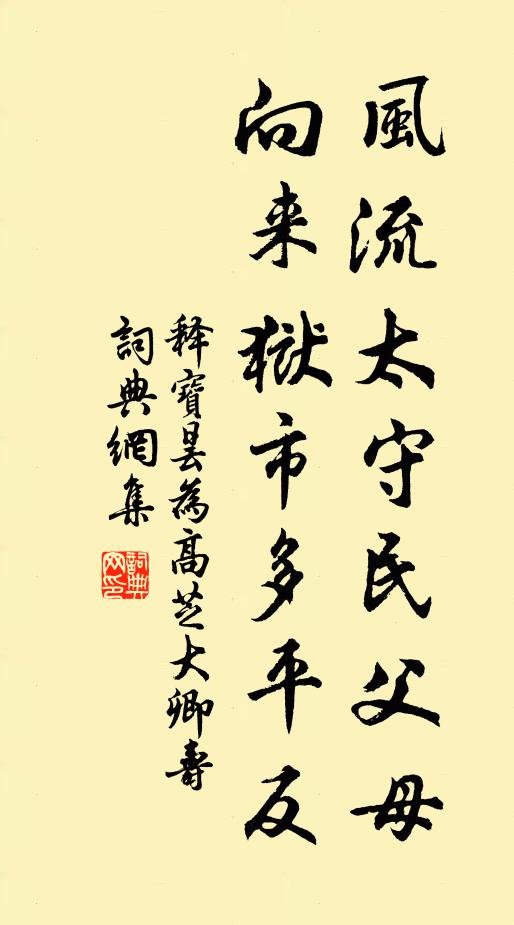 風流太守民父母
向来獄市多平反
释寶曇為高芝大卿壽
詞典網集
詞典网印